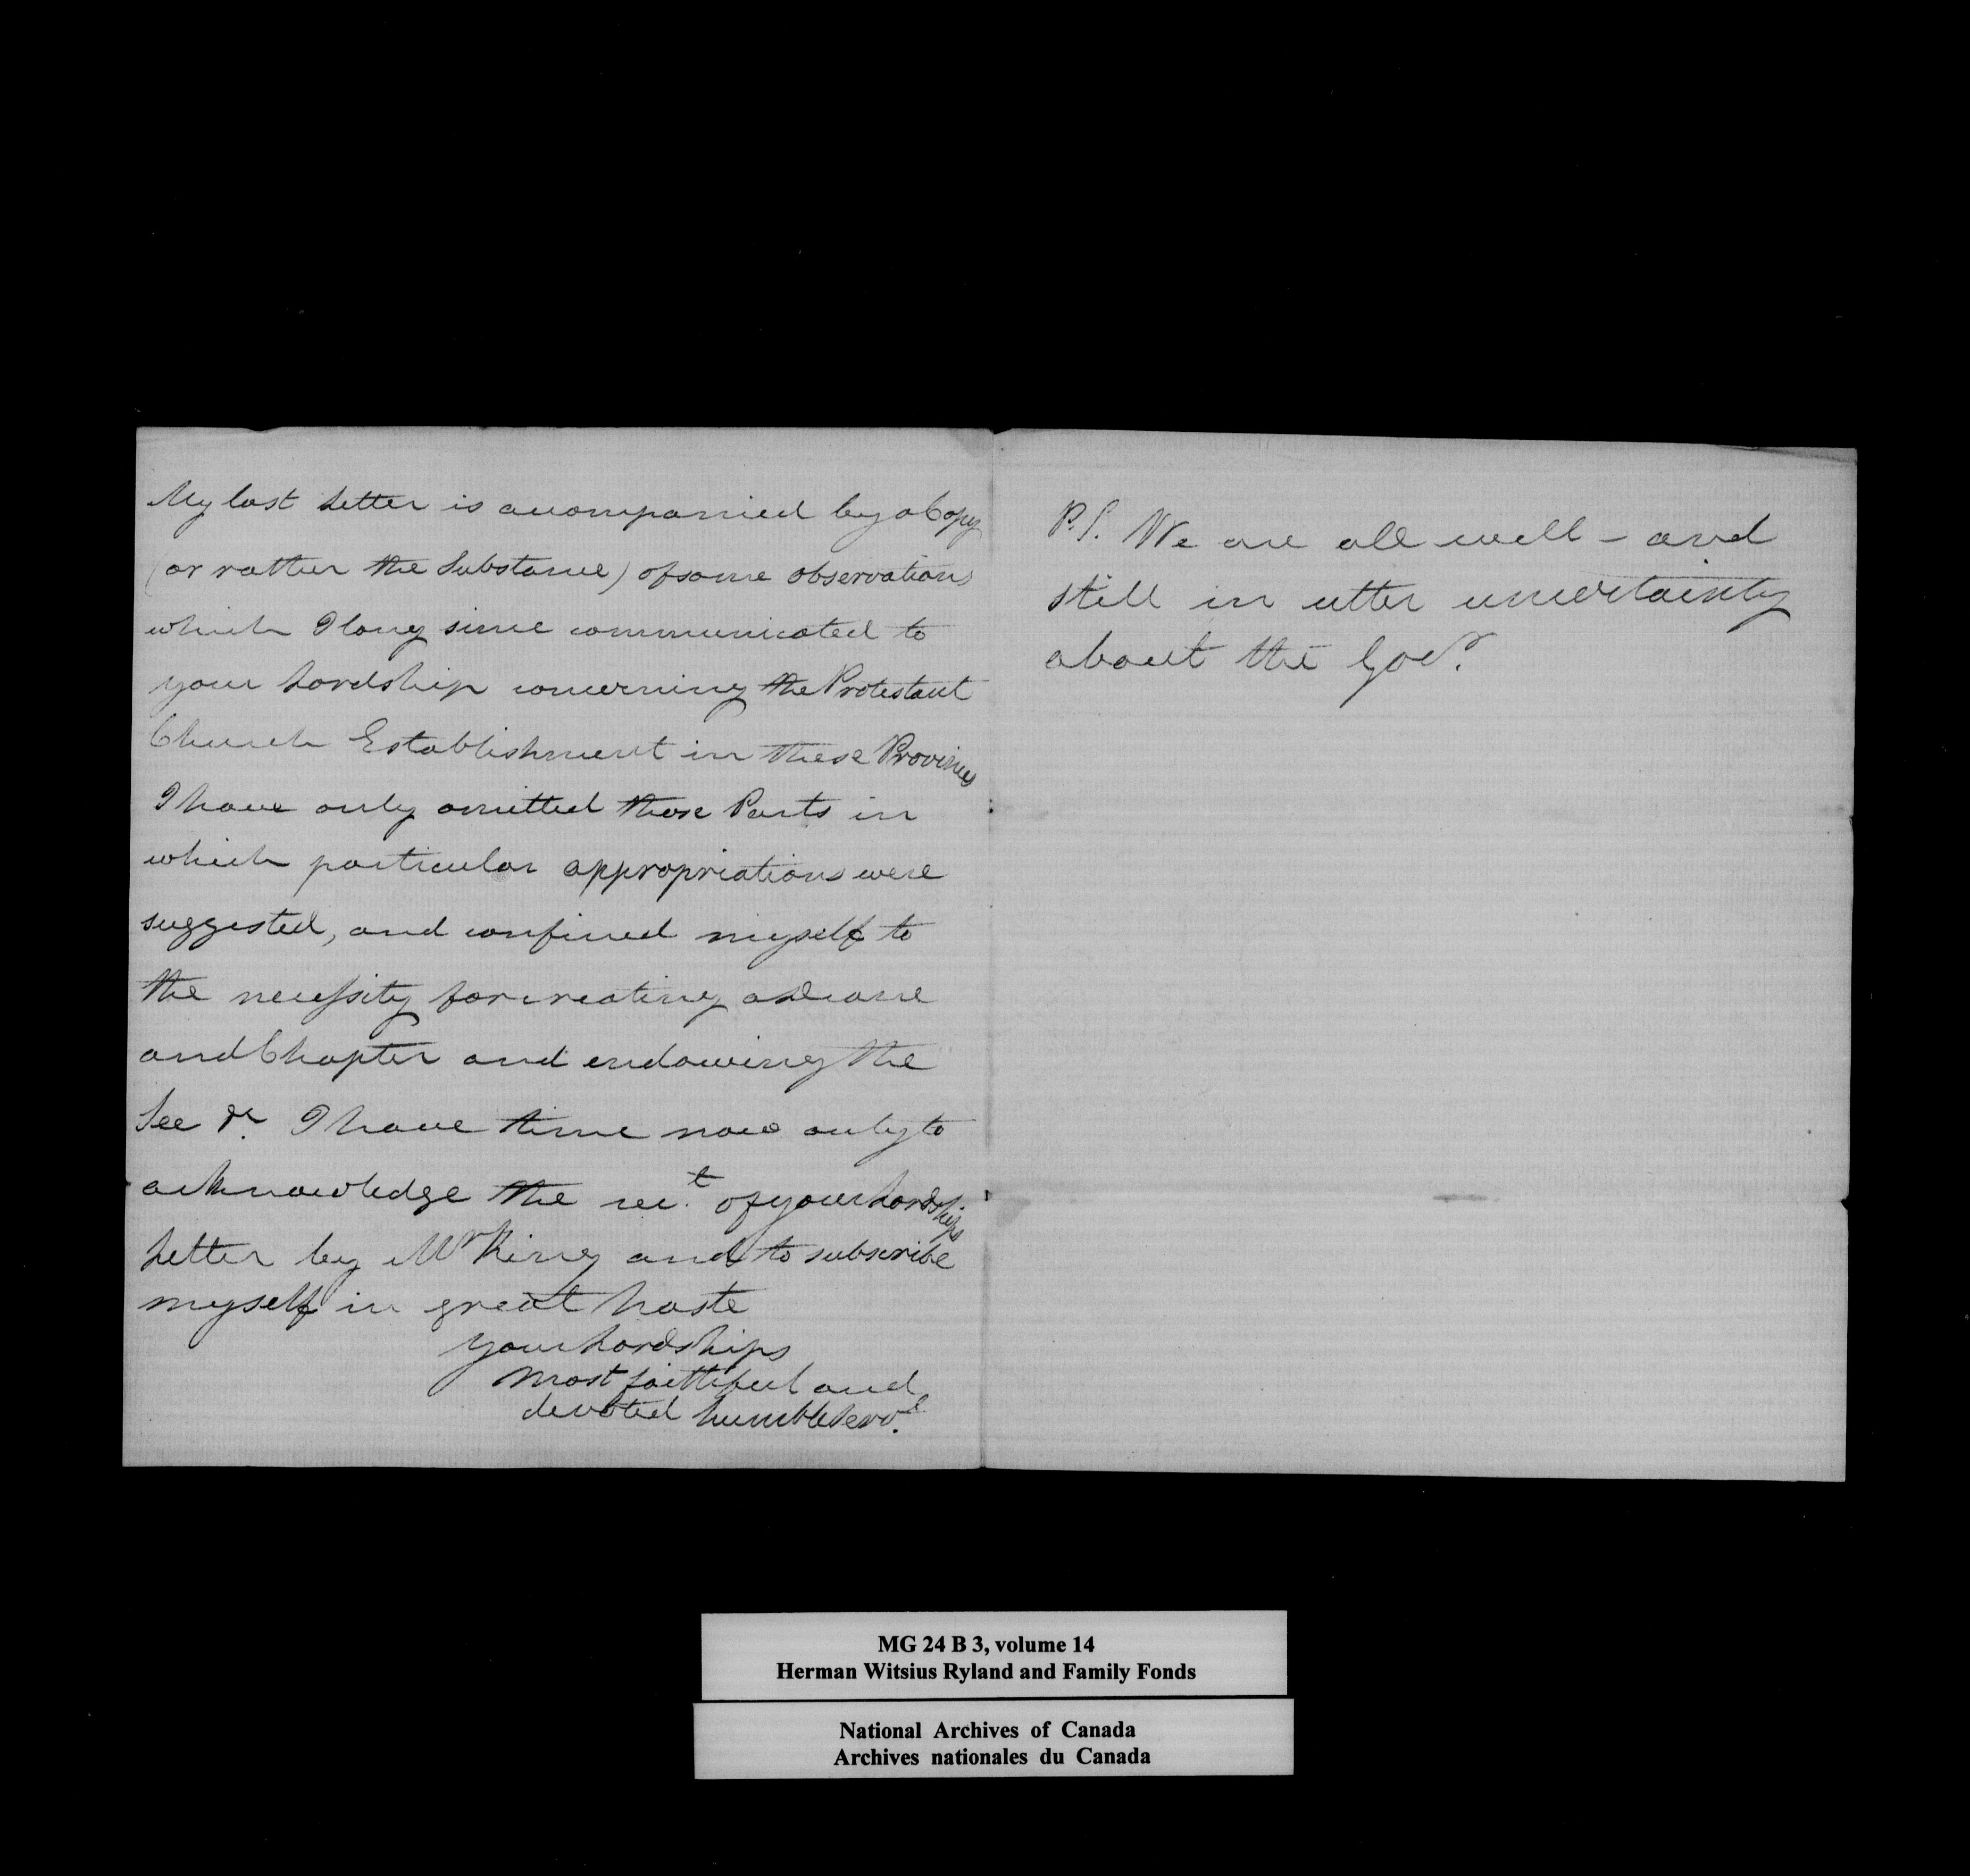 My last Letter is accompanied by a Copy
(or rather the Substance) of some observations
which I long since communicated to
your Lordship concerning the Protestant
Church Establishment in these Provinces
I have only omitted those Parts in
which particular appropriations were
suggested, and confined myself to
the necessity for creating a Deane
and Chapter and endowing the
See &c. I have time now only to
acknowledge the rec.t of your Lordships
Letter by Mr King and to subscribe
myself in great haste
your Lordships
most faithful and
devoted humble Serv.t
P.S. We are all well - and
still in utter uncertainty
about the Gov.r
MG 24 B 3, volume 14
Herman Witsius Ryland and Family Fonds
National Archives of Canada
Archives nationales du Canada